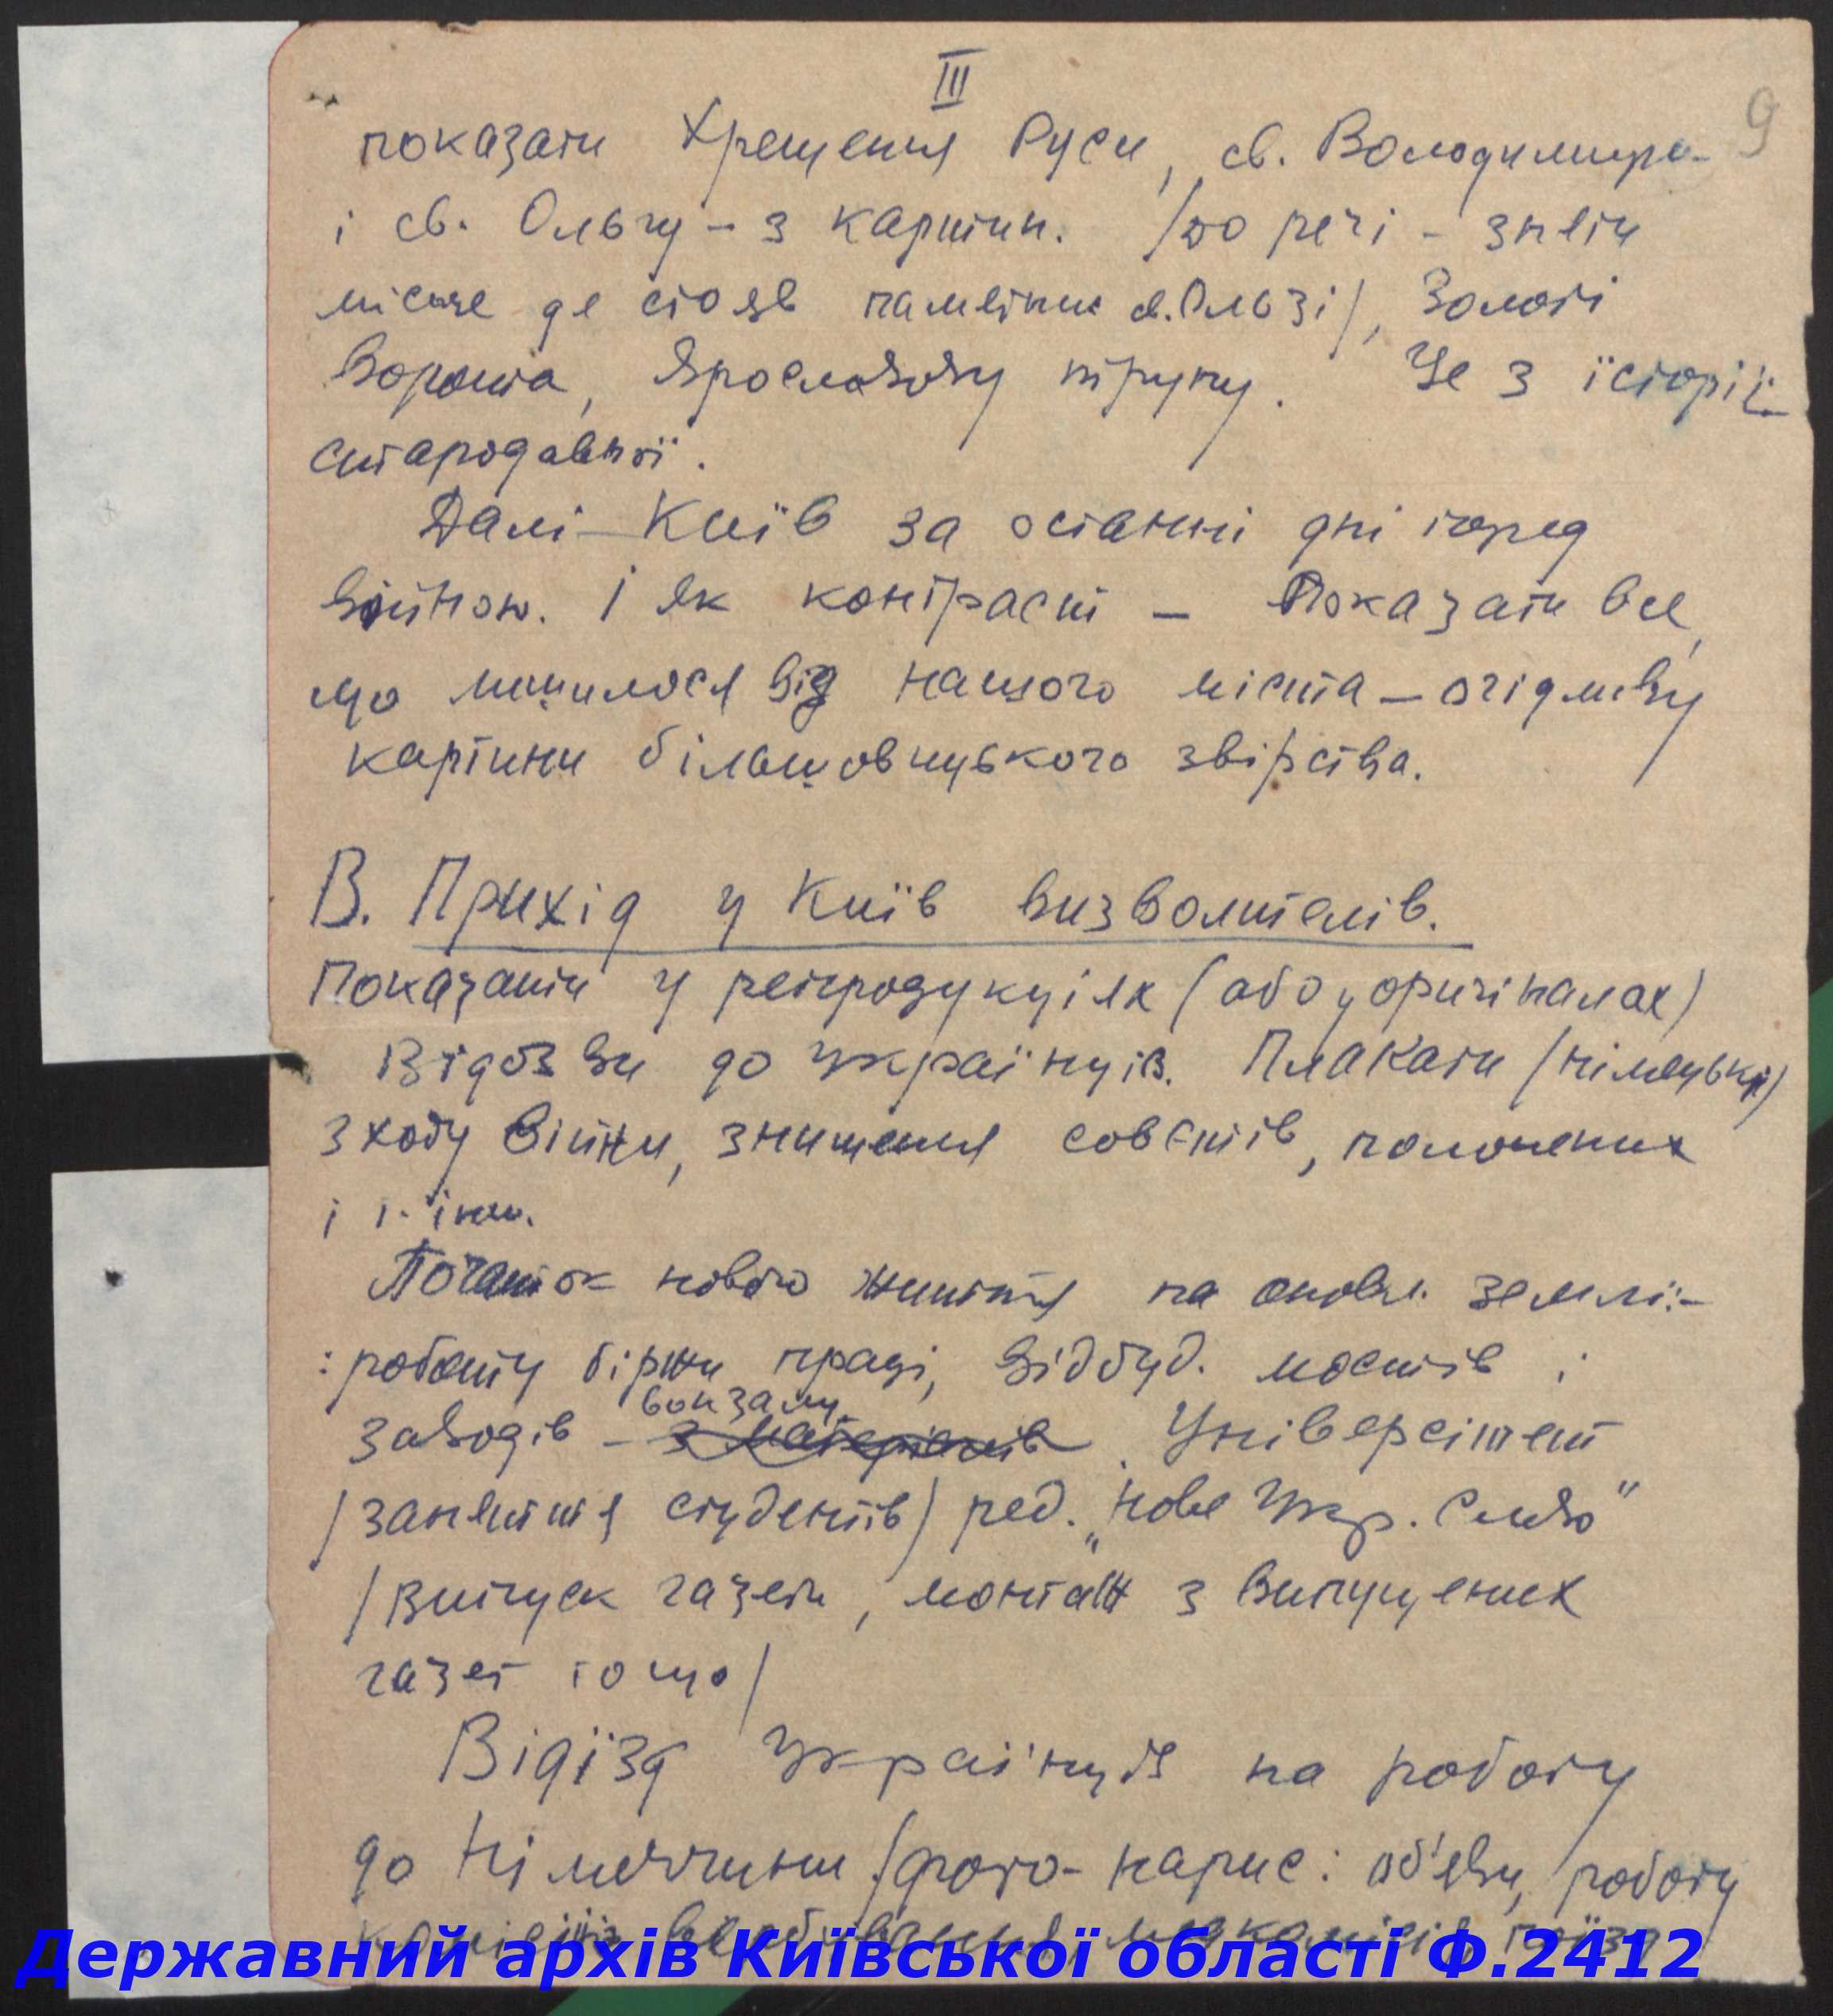 III
9
показати Хрещення Руси, св. Володимира
і св. Ольгу – з картин. /до речі – зняти
місце де стояв памятник св. Ользі/, Золоті
Ворота, Ярославову групу. Це з їсторії
стародавньої.
Далі – Київ за останні дні перед
війною. І як контраст – Показати все,
що лишилося від нашого міста – огідливу
картини більшовицького звірства.
В. Прихід у Київ визволителів.
Показати у репродукціях (або у оригіналах)
Відозви до Українців. Плакати /німецькі/
з ходу війни, знищення совєтів, полонених
і і. інш.
Початок нового життя на землі:-
: роботу біржи праці, відбуд. мостів і
заводів – вокзалу. Університет
/заняття студентів/ ред. „Нове Укр. Слово"
/випуск газети, монтаж з випущених
газет тощо/
Відїзд Українців на роботу
до Німеччини /фото-нарис: об'яви, роботу
Державний архів Київської області Ф.2412